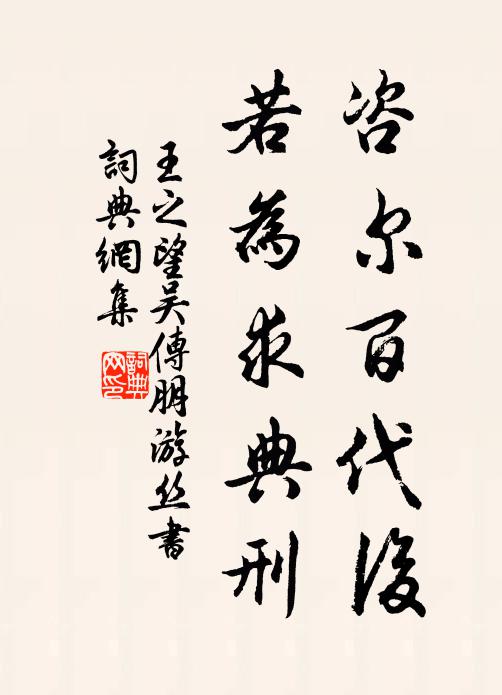 咨尔百代後
若為求典刑
王之望吴傅朋游丝書
詞典網集
詞典网印